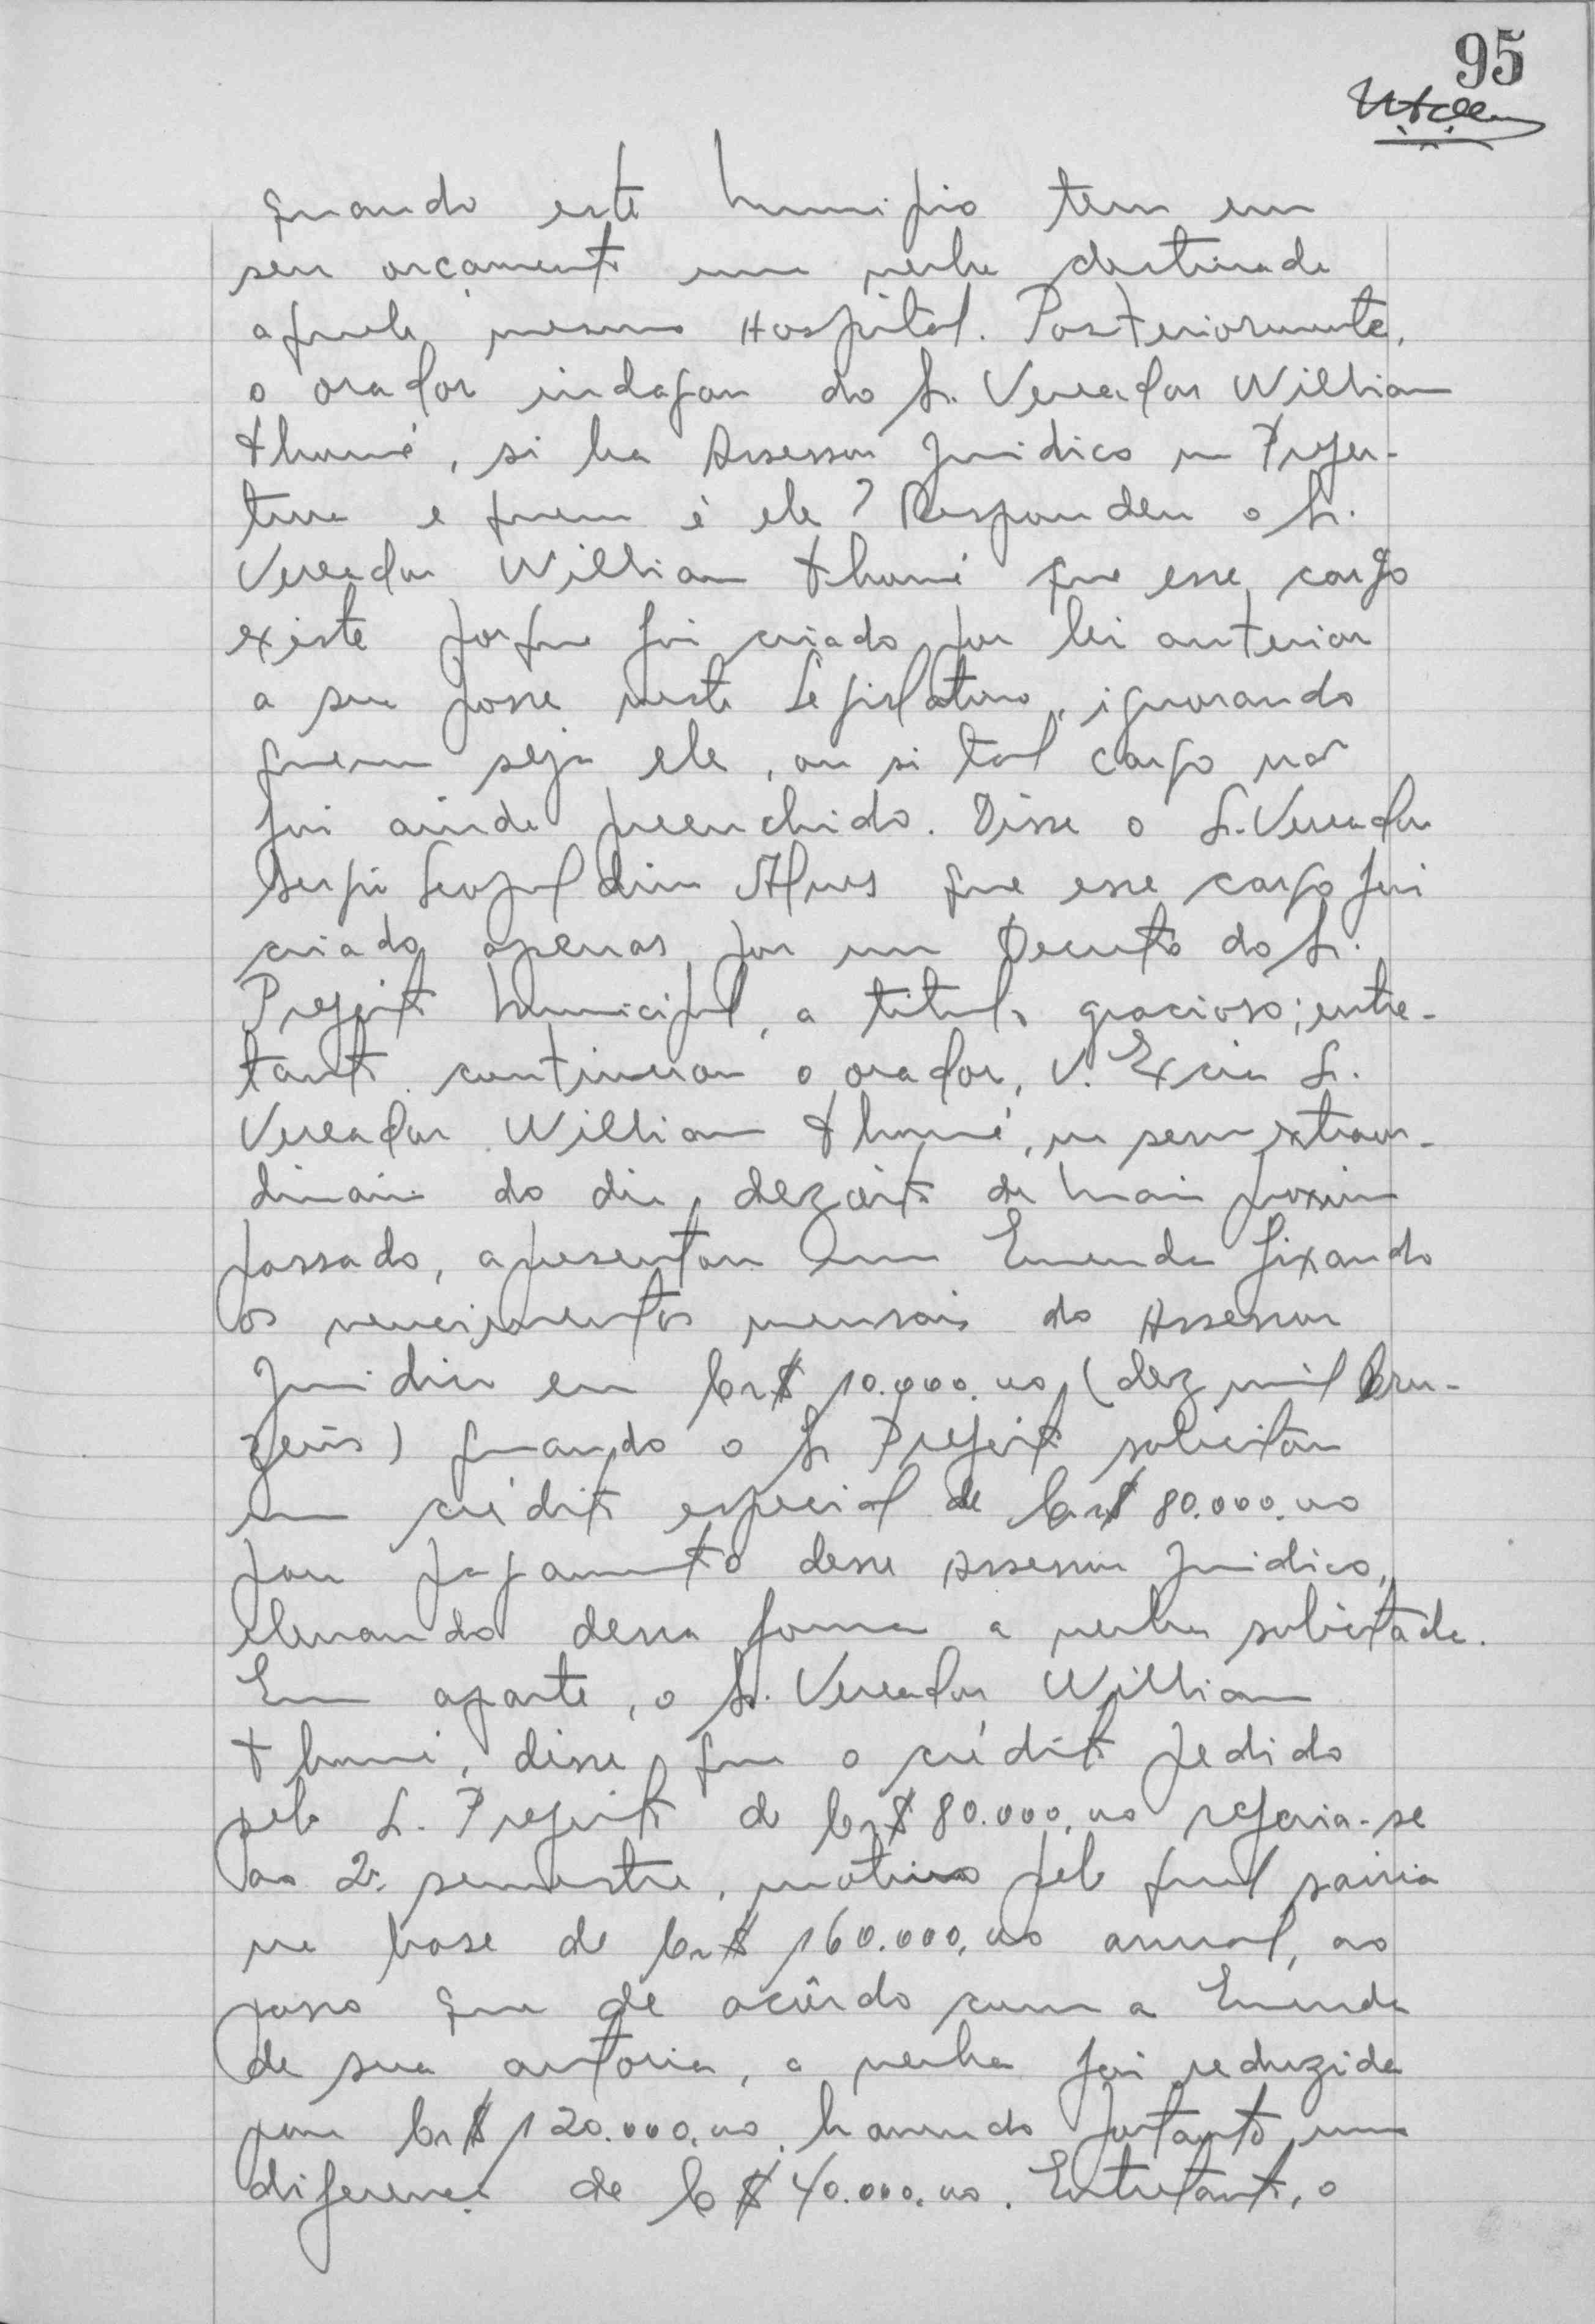 95
quando este Municipio tem em
seu orçamento uma verba destinada
aquele mesmo Hospital. Posteriormente,
o orador indagou do Sr. Vereador William
Thomé, si ha Assessor Juridico na Prefei-
tura e quem é ele? Respondeu o Sr.
Vereador William Thomé que esse cargo
existe porque foi criado por lei anterior
a sua posse neste Legislativo, ignorando
quem seja ele, ou si tal cargo não
foi ainda preenchido. Disse o Sr. Vereador
Sergio Leopoldino Alves que esse cargo foi
criado apenas por um Decreto do Sr.
Prefeito Municipal, a titulo gracioso; entre-
tanto continuou o orador, V. Excia Sr.
Vereador William Thomé, na sessão extraor-
dinaria do dia dezoito de Maio proximo
passado, apresentou uma Emenda fixando
os vencimentos mensais do Assessor
Juridico em Cr$ 10.000,00 (dez mil Cru-
zeiros) quando o Sr Prefeito solicitou
um crédito especial de Cr$ 80.000,00
para pagamento desse Assessor Juridico,
elevando dessa forma a verba solicitada.
Em aparte, o Sr. Vereador William
Thomé, disse que o crédito pedido
pelo Sr. Prefeito de Cr$ 80.000,00 referia-se
ao 2º semestre, motivo pelo qual sairia
na base de Cr$ 160.000,00 anual, ao
passo que de acôrdo com a Emenda
de sua autoria, a verba foi reduzida
para Cr$ 120.000,00, havendo portanto uma
diferença de Cr$ 40.000,00. Entretanto, o